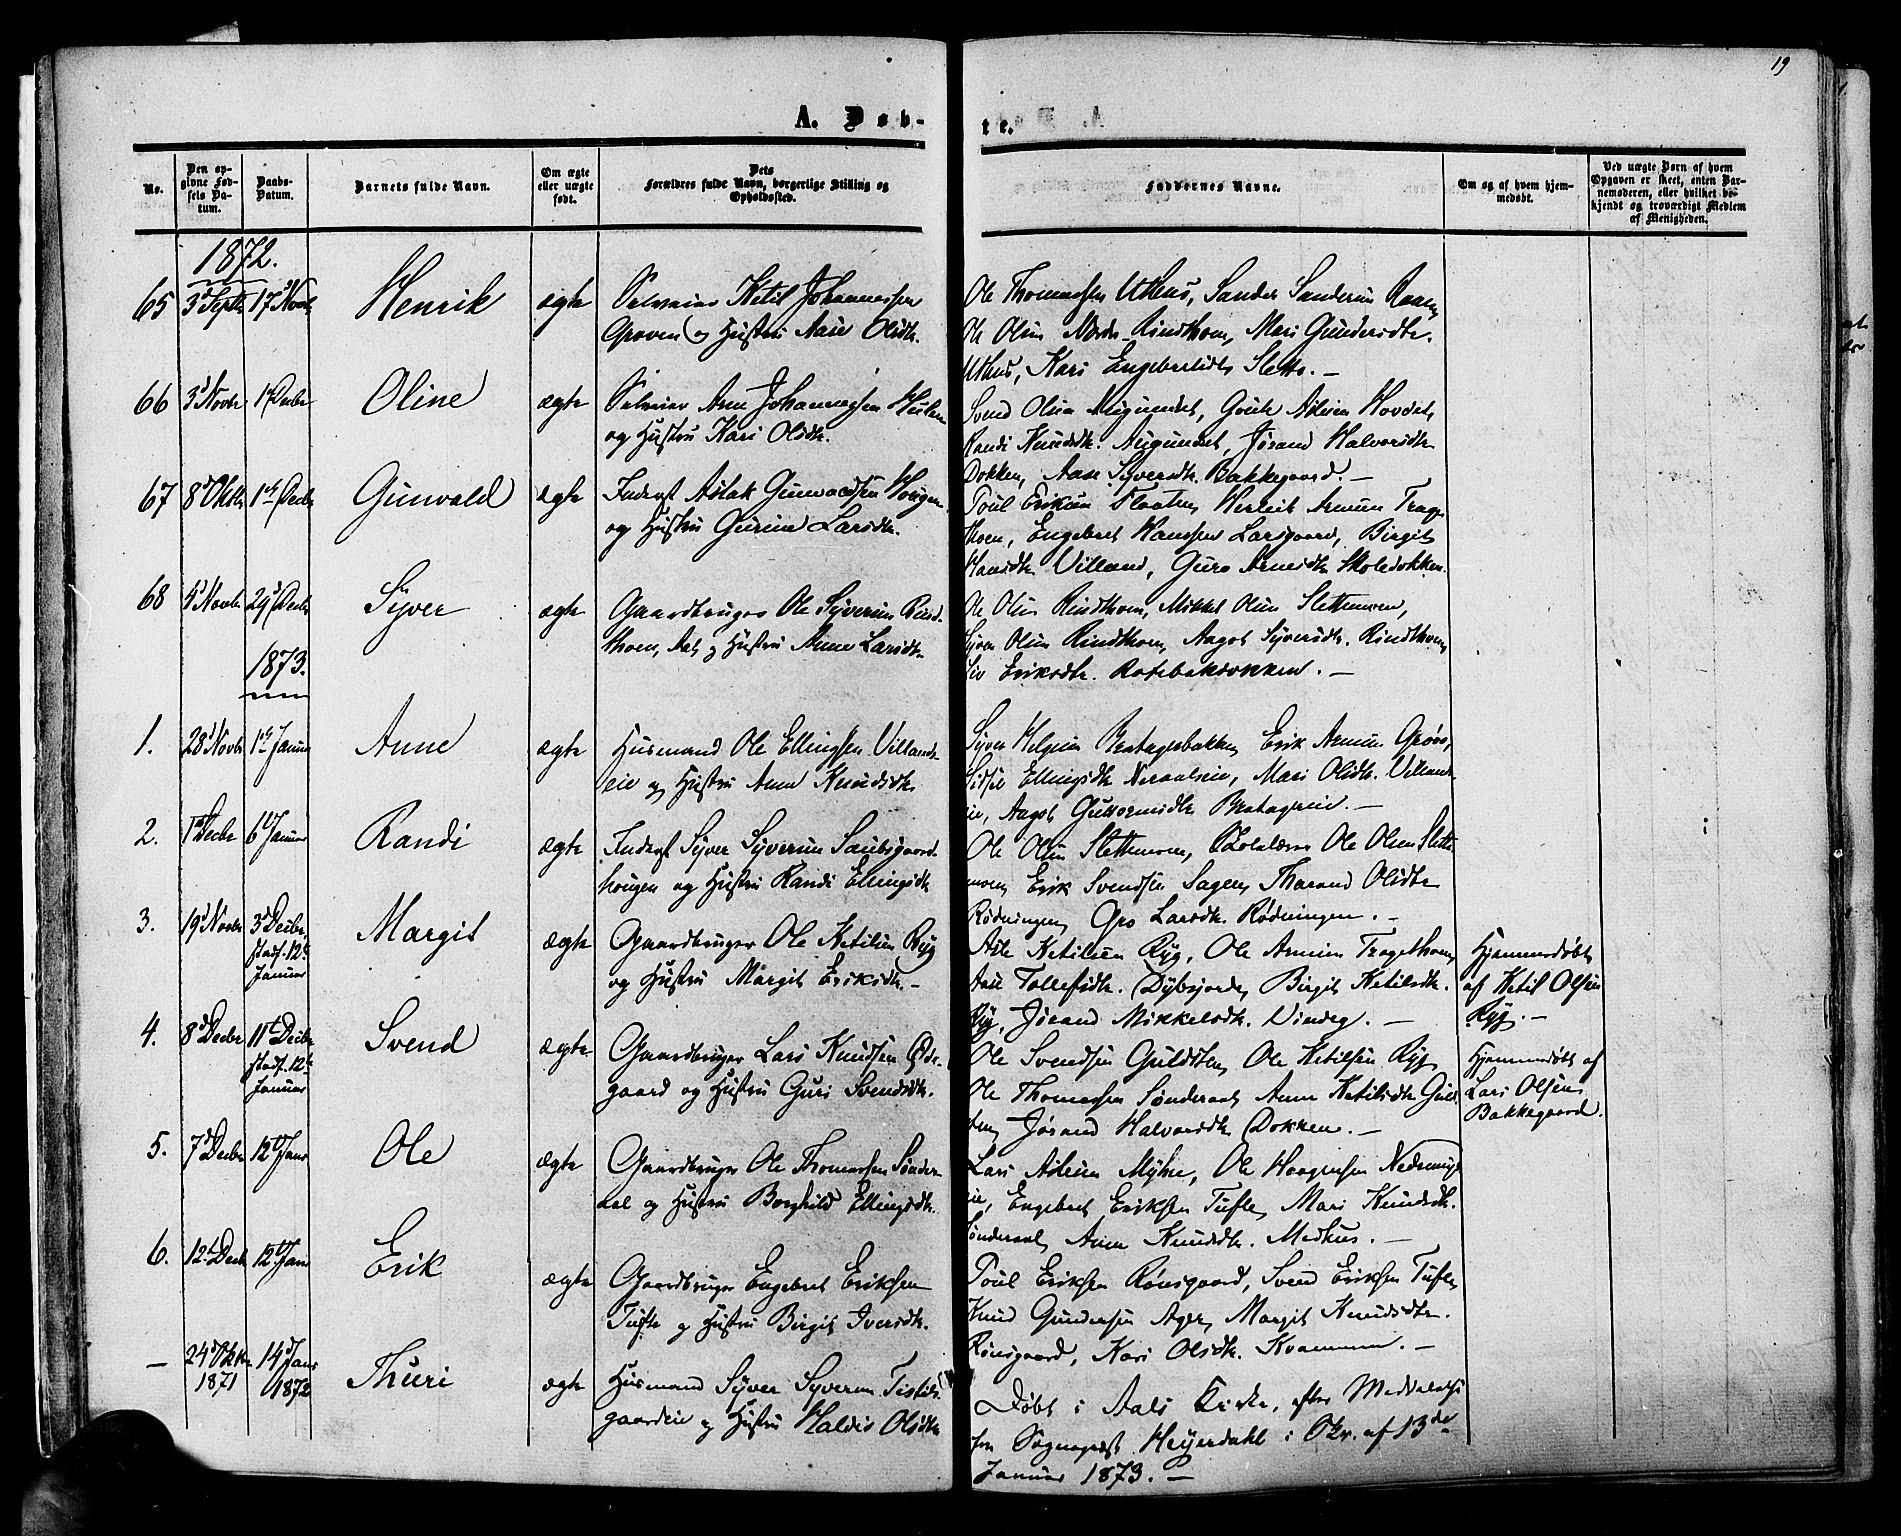 19
A. Døb-
te.
No.
Den op-
givne Fød-
sels Da-
tum.
Daabs-
Datum.
Barnets fulde Navn.
Om ægte
eller uægte
født.
Dets
Forældres fulde Navn, borgerlige Stilling og
Opholdssted.
Faddernes Navne.
Om og af hvem hjem-
medøbt.
Ved uægte Børn af hvem
Opgaven er skeet, enten Bar-
nemoderen, eller hvilket be-
kjendt og troværdigt Medlem
af Menigheden.
1872.
65 3d Septbr 17d Novbr Henrik ægte Ketil Johannessen
Groven og Hustru Aase Olsdtr.
Ole Thomassen Uthus, Sander Sandersen
Ole Olsen Nordre Rindthoen, Mari Gundersdtr.
Uthus, Kari Engebretsdtr Sletto. —
66 3d Novbr 1st Decbr Oline ægte Arne Johannessen
og Hustru Kari Olsdtr.
Svend Olsen Hovdet,
Randi Knudsdtr. Jørand Halvorsdtr
Dokken, Aase Syversdtr. Bakkegaard. —
67 8d Oktbr 1ste Decbr Gunvald ægte Inderst Aslak Gunvaldsen Haugen
og Hustru Gurine Larsdtr.
Poul Eriksen Herleik Arnesen Traget-
hoen, Engebret Hanssen Larsgaard, Birgit
Hansdtr Villand, Guro Arnesdtr Skoledokken.
68 4d Novbr 29d Decbr Syver ægte Gaardbruger Ole Syversen Rind-
thoen, Aal, og Hustru Anne Larsdtr
Ole Olsen Rindthoen, Mikkel Olsen Slettemoen,
Syver Olsen Rindthoen, Aagot Syversdtr. Rindthoen,
Siv Eriksdtr. —
1873.
1. 28d Novbr 1ste Januar Anne ægte Husmand Ole Ellingssen Villands-
eie og Hustru Anne Knudsdtr.
Syver Helgesen Bratagerbakken, Erik Arnesen
Ellingsdtr Mari Olsdtr. Villands-
eie, Aagot Guttormsdtr Bratagereie. —
2. 1ste Decbr 6t Januar Randi ægte Inderst Syver Syversen
haugen og Hustru Randi Ellingsdtr
Ole Olsen Slettemoen, Ole Olsen Slette-
moen, Erik Svendsen Sagen, Tharand Olsdtr
Rødningen, Gro Larsdtr. Rødningen. —
3. 19d Novbr 3d Decbr. Margit ægte Gaardbruger Ole Ketilsen Ryg
stadf. 12t
Januar
og Hustru Margit Eriksdtr. —
Asle Ketilsen Ryg, Ole Arnesen Tragethoen,
Aase Tollefsdtr. Dybsjorde, Birgit Ketilsdtr.
Ryg, Jørand Mikkelsdtr. Vindeg. —
Hjemmedøbt
af Ketil Olsen
Ryg. —
4. 8d Decbr 11t Decbr Svend ægte Gaardbruger Lars Knudsen Øde-
stadf. 12t
Januar
gaard og Hustru Guri Svendsdtr.
Ole Svendsen Guldsten, Ole Ketilsen Ryg,
Ole Thomassen Sønderaal, Anne Ketilsdtr Guld-
sten, Jørand Halvorsdtr Dokken. —
Hjemmedøbt af
Lars Olsen
Bakkegaard.
5. 7d Decbr 12t Janr Ole ægte Gaardbruger Ole Thomassen Sønder-
aal og Hustru Borghild Ellingsdtr.
Lars Aslesen Myhre, Ole Haagensen
eie, Engebret Eriksen Tufte, Mari Knudsdtr.
Sønderaal, Anne Knudsdtr. Medhus. —
6. 12t Decbr 12t Janr Erik ægte Gaardbruger Engebret Eriksen
Tufte og Hustru Birgit Iversdtr.
Poul Eriksen Rønsgaard, Svend Eriksen Tufte,
Knud Gundersen Ager, Margit Knudsdtr.
Rønsgaard, Kari Olsdtr. Kvammen. —
— 24d Oktbr 14d Janr Thuri ægte Husmand Syver Syversen
1871 1872
gaardeie og Hustru Haldis Olsdtr
Døbt i Aals Kirke, efter Meddelelse
fra Sognepræst Heyerdahl i Skr. af 13de
Januar 1873. —